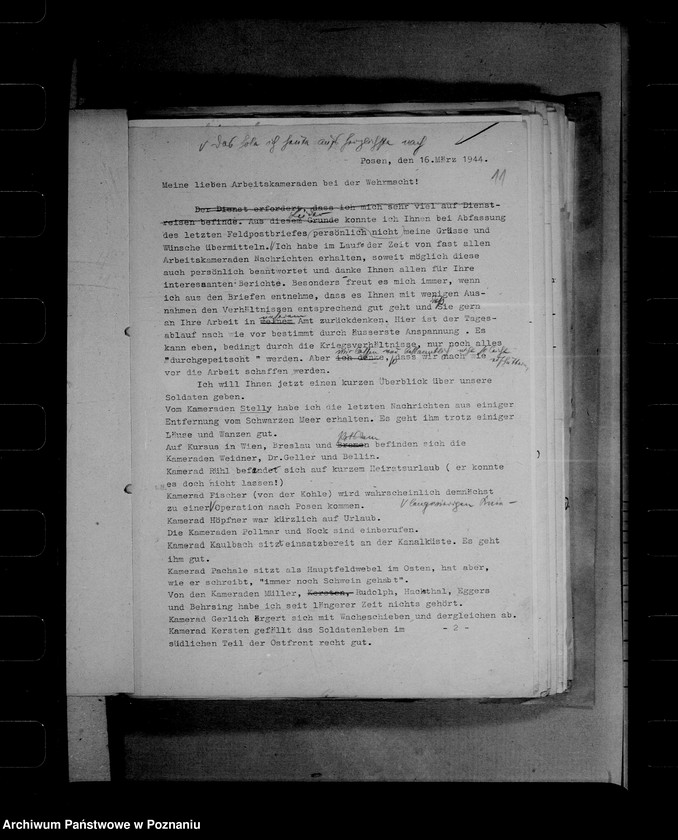 das hole ich heute aufs herzlichste nach
Posen, den 16.März 1944.
11
Meine lieben Arbeitskameraden bei der Wehrmacht!
Der Dienst erfordert, dass ich mich sehr viel auf Dienst-
reisen befinde. Aus diesem Grunde konnte ich Ihnen bei Abfassung
Leider
des letzten Feldpostbriefes persönlich nicht meine Grüsse und
Wünsche übermitteln. Ich habe im Laufe der Zeit von fast allen
Arbeitskameraden Nachrichten erhalten, soweit möglich diese
auch persönlich beantwortet und danke Ihnen allen für Ihre
interessanten Berichte. Besonders freut es mich immer, wenn
ich aus den Briefen entnehme, dass es Ihnen mit wenigen Aus-
nahmen den Verhältnissen entsprechend gut geht und Sie gern
an Ihre Arbeit in meinem Amt zurückdenken. Hier ist der Tages-
unserem
ablauf nach wie vor bestimmt durch äusserste Anspannung . Es
kann eben, bedingt durch die Kriegsverhältnisse, nur noch alles
"durchgepeitscht " werden. Aber ich denke, dass wir nach wie
vor die Arbeit schaffen werden.
Ich will Ihnen jetzt einen kurzen Überblick über unsere
Soldaten geben.
Vom Kameraden Stelly habe ich die letzten Nachrichten aus einiger
Entfernung vom Schwarzen Meer erhalten. Es geht ihm trotz einiger
Läuse und Wanzen gut.
Potsdam
Auf Kursus in Wien, Breslau und befinden sich die
Kameraden Weidner, Dr.Geller und Bellin.
Kamerad Rühl befindet sich auf kurzem Heiratsurlaub ( er konnte
es doch nicht lassen!)
Kamerad Fischer (von der Kohle) wird wahrscheinlich demnächst
zu einer Operation nach Posen kommen.
Kamerad Höpfner war kürzlich auf Urlaub.
Die Kameraden Pollmar und Nock sind einberufen.
Kamerad Kaulbach sitzt einsatzbereit an der Kanalküste. Es geht
ihm gut.
Kamerad Pachale sitzt als Hauptfeldwebel im Osten, hat aber,
wie er schreibt, "immer noch Schwein gehabt".
Von den Kameraden Müller, Kersten, Rudolph, Hachthal, Eggers
und Behrsing habe ich seit längerer Zeit nichts gehört.
Kamerad Gerlich ärgert sich mit Wacheschieben und dergleichen ab.
Kamerad Kersten gefällt das Soldatenleben im - 2 -
südlichen Teil der Ostfront recht gut.
Archiwum Państwowe w Poznaniu